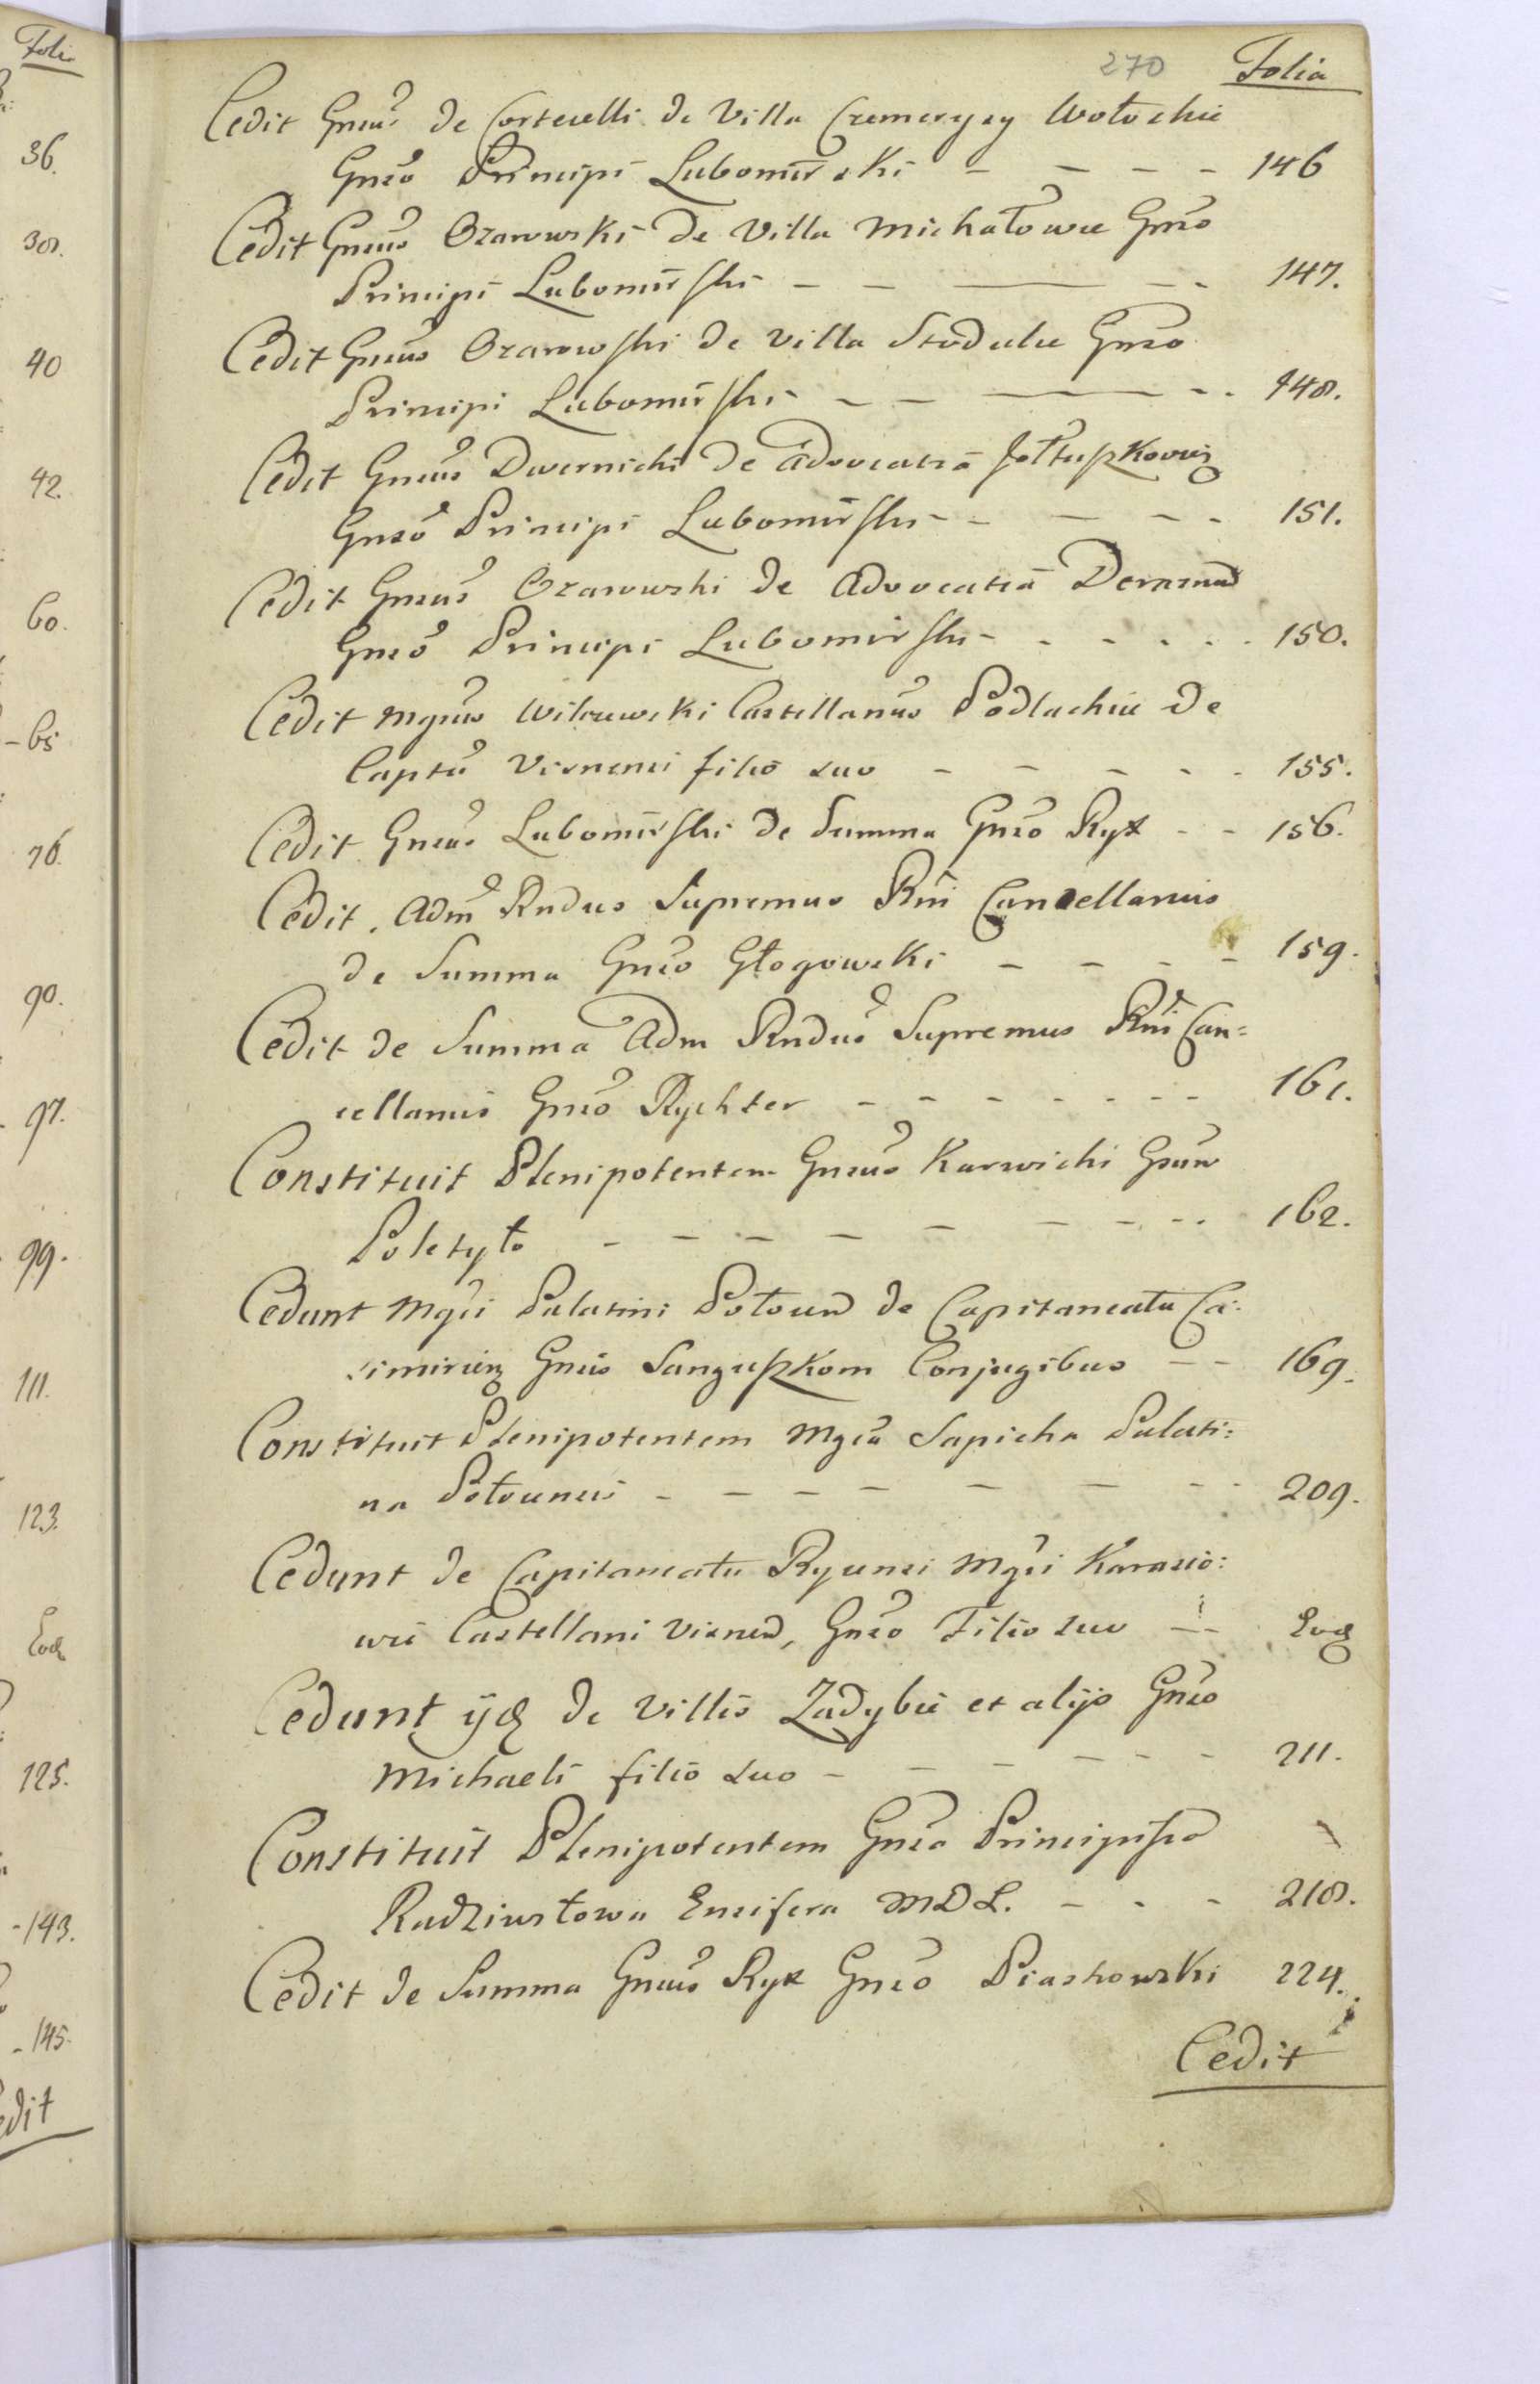 Foli
36.
38.
40
42.
60.
- 65
76.
90.
97.
99.
111.
123.
Eod
125.
- 143.
- 145.
edit
270 Folia
Cedit Gnsus de Cortecelli de Villa Czemeryzy Wołochie
Gnso Principi Lubomirski - - - - 146
Cedit Gnsus Ozarowski de Villa Michałowce Gnso
Principi Lubomirski - - - - - 147.
Cedit Gnsus Ozarowski de Villa Stodulce Gnso
Principi Lubomirski - - - - - 148.
Cedit Gnsus Dwernicki de Advocatia
Gnso Principi Lubomirski - - - - - 151.
Cedit Gnsus Ozarowski de Advocatia
Gnso Principi Lubomirski - - - - - - 150.
Cedit Mgnus Wilczewski Castellanus Podlachiae de
Captu Visnensi filio suo - - - - - 155.
Cedit Gnsus Lubomirski de Summa Gnso Ryx - - 156.
Cedit. Adm Rndus Supremus Rni Cancellarius
de Summa Gnso Głogowski - - - - 159.
Cedit de Summa Adm Rndus Supremus Rni Can=
cellarius Gnso Rychter - - - - - - - 161.
Constituit Plenipotentem Gnsus Karwicki Gsum
Poletyło - - - - - - - - - 162.
Cedunt Mgci Palatini Połocen de Capitaneatu Ca=
simirien Gnsis Sanguszkom Conjugibus - - 169.
Constituit Plenipotentem Mgca Sapieha Palati=
na Połocensis - - - - - - - - 209.
Cedunt de Capitaneatu Mgci Karasio:
wie Castellani Visnen, Gnso Filio suo - - Eod
Cedunt ijd de Villis Zadybie et alijs Gnso
Michaeli filio suo - - - - - - 211.
Constituit Plenipotentem Gnsa Principissa
Radziwiłowa Ensifera M D L. - - - 218.
Cedit de Summa Gnsus Ryx Gnso Piaskowski 224.
Cedit